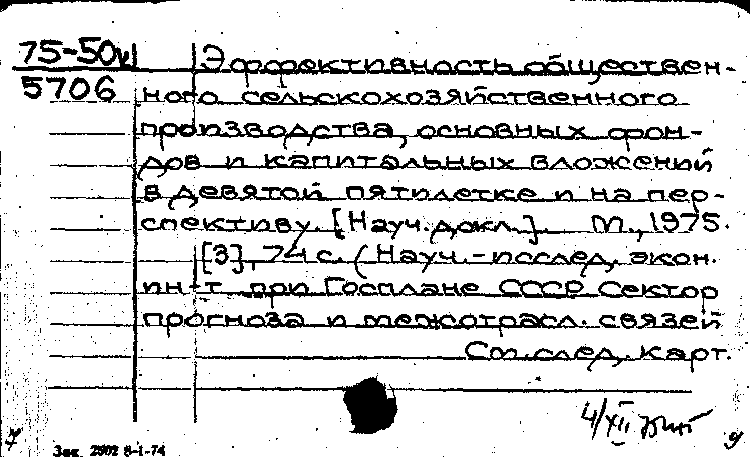 75-50к Эффективность обществен-
5706 ного сельскохозяйственного
производства, основных фон-
дов и капитальных вложений
в девятой пятилетке и на пер-
спективу. [Науч. докл.]. М., 1975.
[3], 74 с. (Науч.-исслед. экон.
ин-т при Госплане СССР Сектор
прогноза и межотрасл. связей
См. след. карт.
4/XII
7
9
Зак. 2902 8-1-74